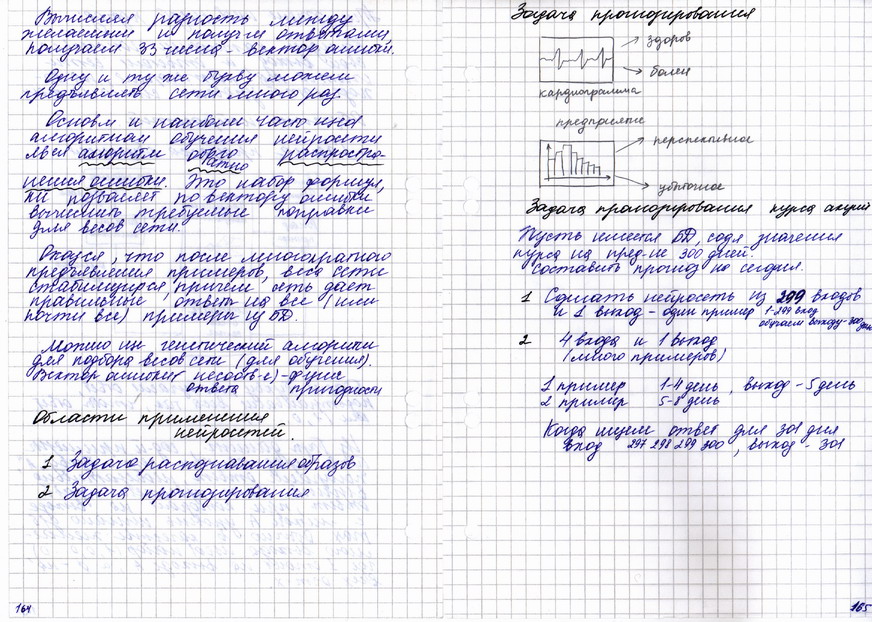 Вычисляя разность между
желаемыми и получ ответами,
получаем 33 числа - вектор ошибки.
Одну и ту же букву можем
предъявлять сети много раз.
Основн и наиболе часто
алгоритмом обучения нейросети
явл-ся алгоритм обратно распростра-
нения ошибки. Это набор формул,
позволяет по вектору ошибки
вычислить требуемые поправки
для весов сети.
Оказ-ся, что после многократного
предъявления примеров, веса сети
стабилизируются, причем сеть дает
правильные ответы на все (или
почти все) примеры из БД.
Можно исп генетический алгоритм
для подбора весов сети (для обучения).
Вектор ошибки ответа - функ пригодности
Области применения
нейросетей.
1 Задача распознавания образов
2 Задача прогнозирования
164
Задача прогнозирования
здоров
болен
кардиограмма
предприятие
перспективное
убыточное
Задача прогнозирования курса акций
Пусть имеется БД, содя значения
курса на пред-ие 300 дней.
Составить прогноз на сегодня.
1 Сделать нейросеть из 299 входов
и 1 выход - один пример 1-299 вход
обучаем выходу - 300 день
2 4 входа и 1 выход
(много примеров)
1 пример 1-4 день, выход - 5 день
2 пример 5-8 день
Когда ищем ответ для 301 дня
вход 297 298 299 300, выход - 301
165